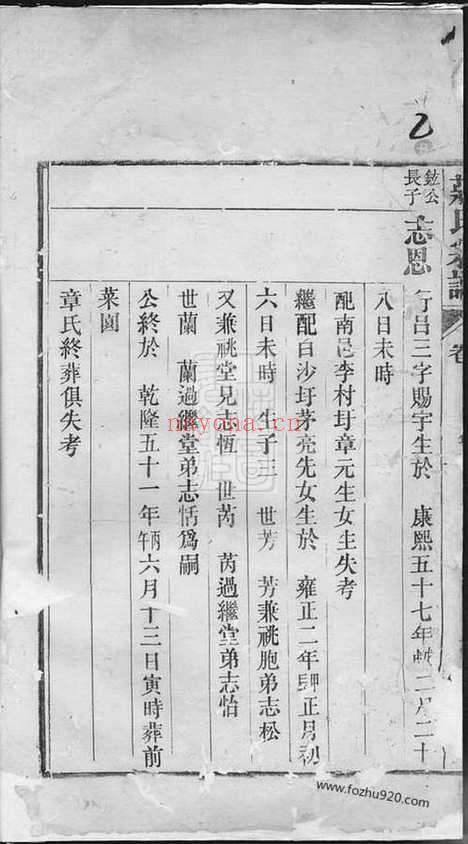 乙
氏宗譜
卷
鉉公
長子
志恩
行吕三字賜宇生於 康熙五十七年戊戌二月二十
八日未時
配南邑李村圩章元生女生失考
繼配白沙圩茅亮先女生於 雍正二年甲辰正月初
六日未時 生子三 世芳 芳兼祧胞弟志松
又兼祧堂兄志恆 世芮 芮過繼堂弟志怡
世蘭 蘭過繼堂弟志恬爲嗣
公終於 乾隆五十一年丙午六月十三日寅時葬前
菜園
章氏終葬俱失考
nayona.cn
www.fozhu920.com